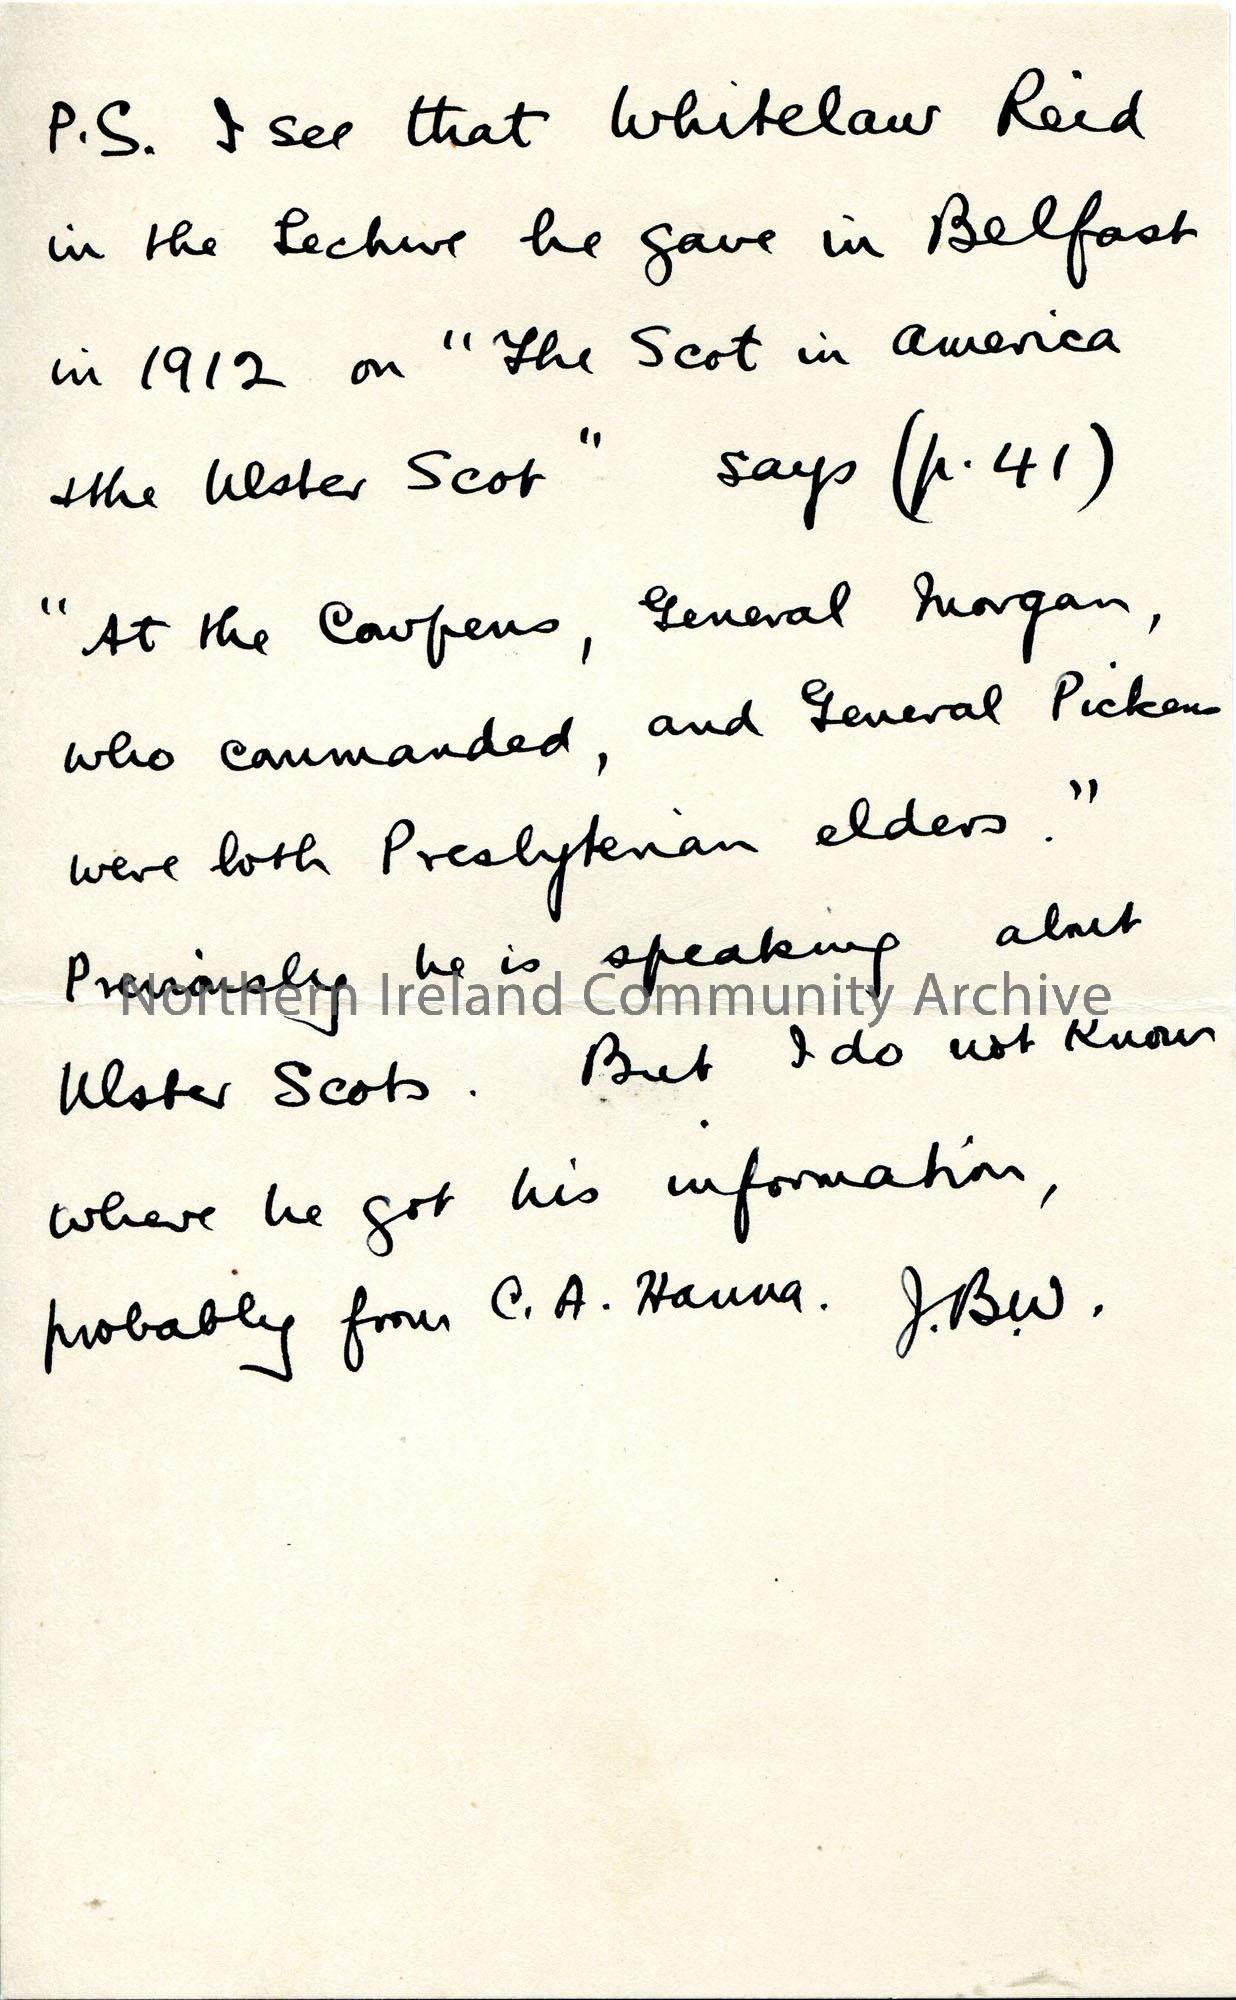 P.S. I see that Whitelaw Reid
in the Lecture he gave in Belfast
in 1912 on "The Scot in America
& the Ulster Scot" says (p. 41)
"At the Cowpens, General Morgan,
who commanded, and General Pickens
were both Presbyterian elders."
Previously he is speaking about
Northern Ireland Community Archive
Ulster Scots. But I do not know
where he got his information,
probably from C. A. Hanna. J.B.W.